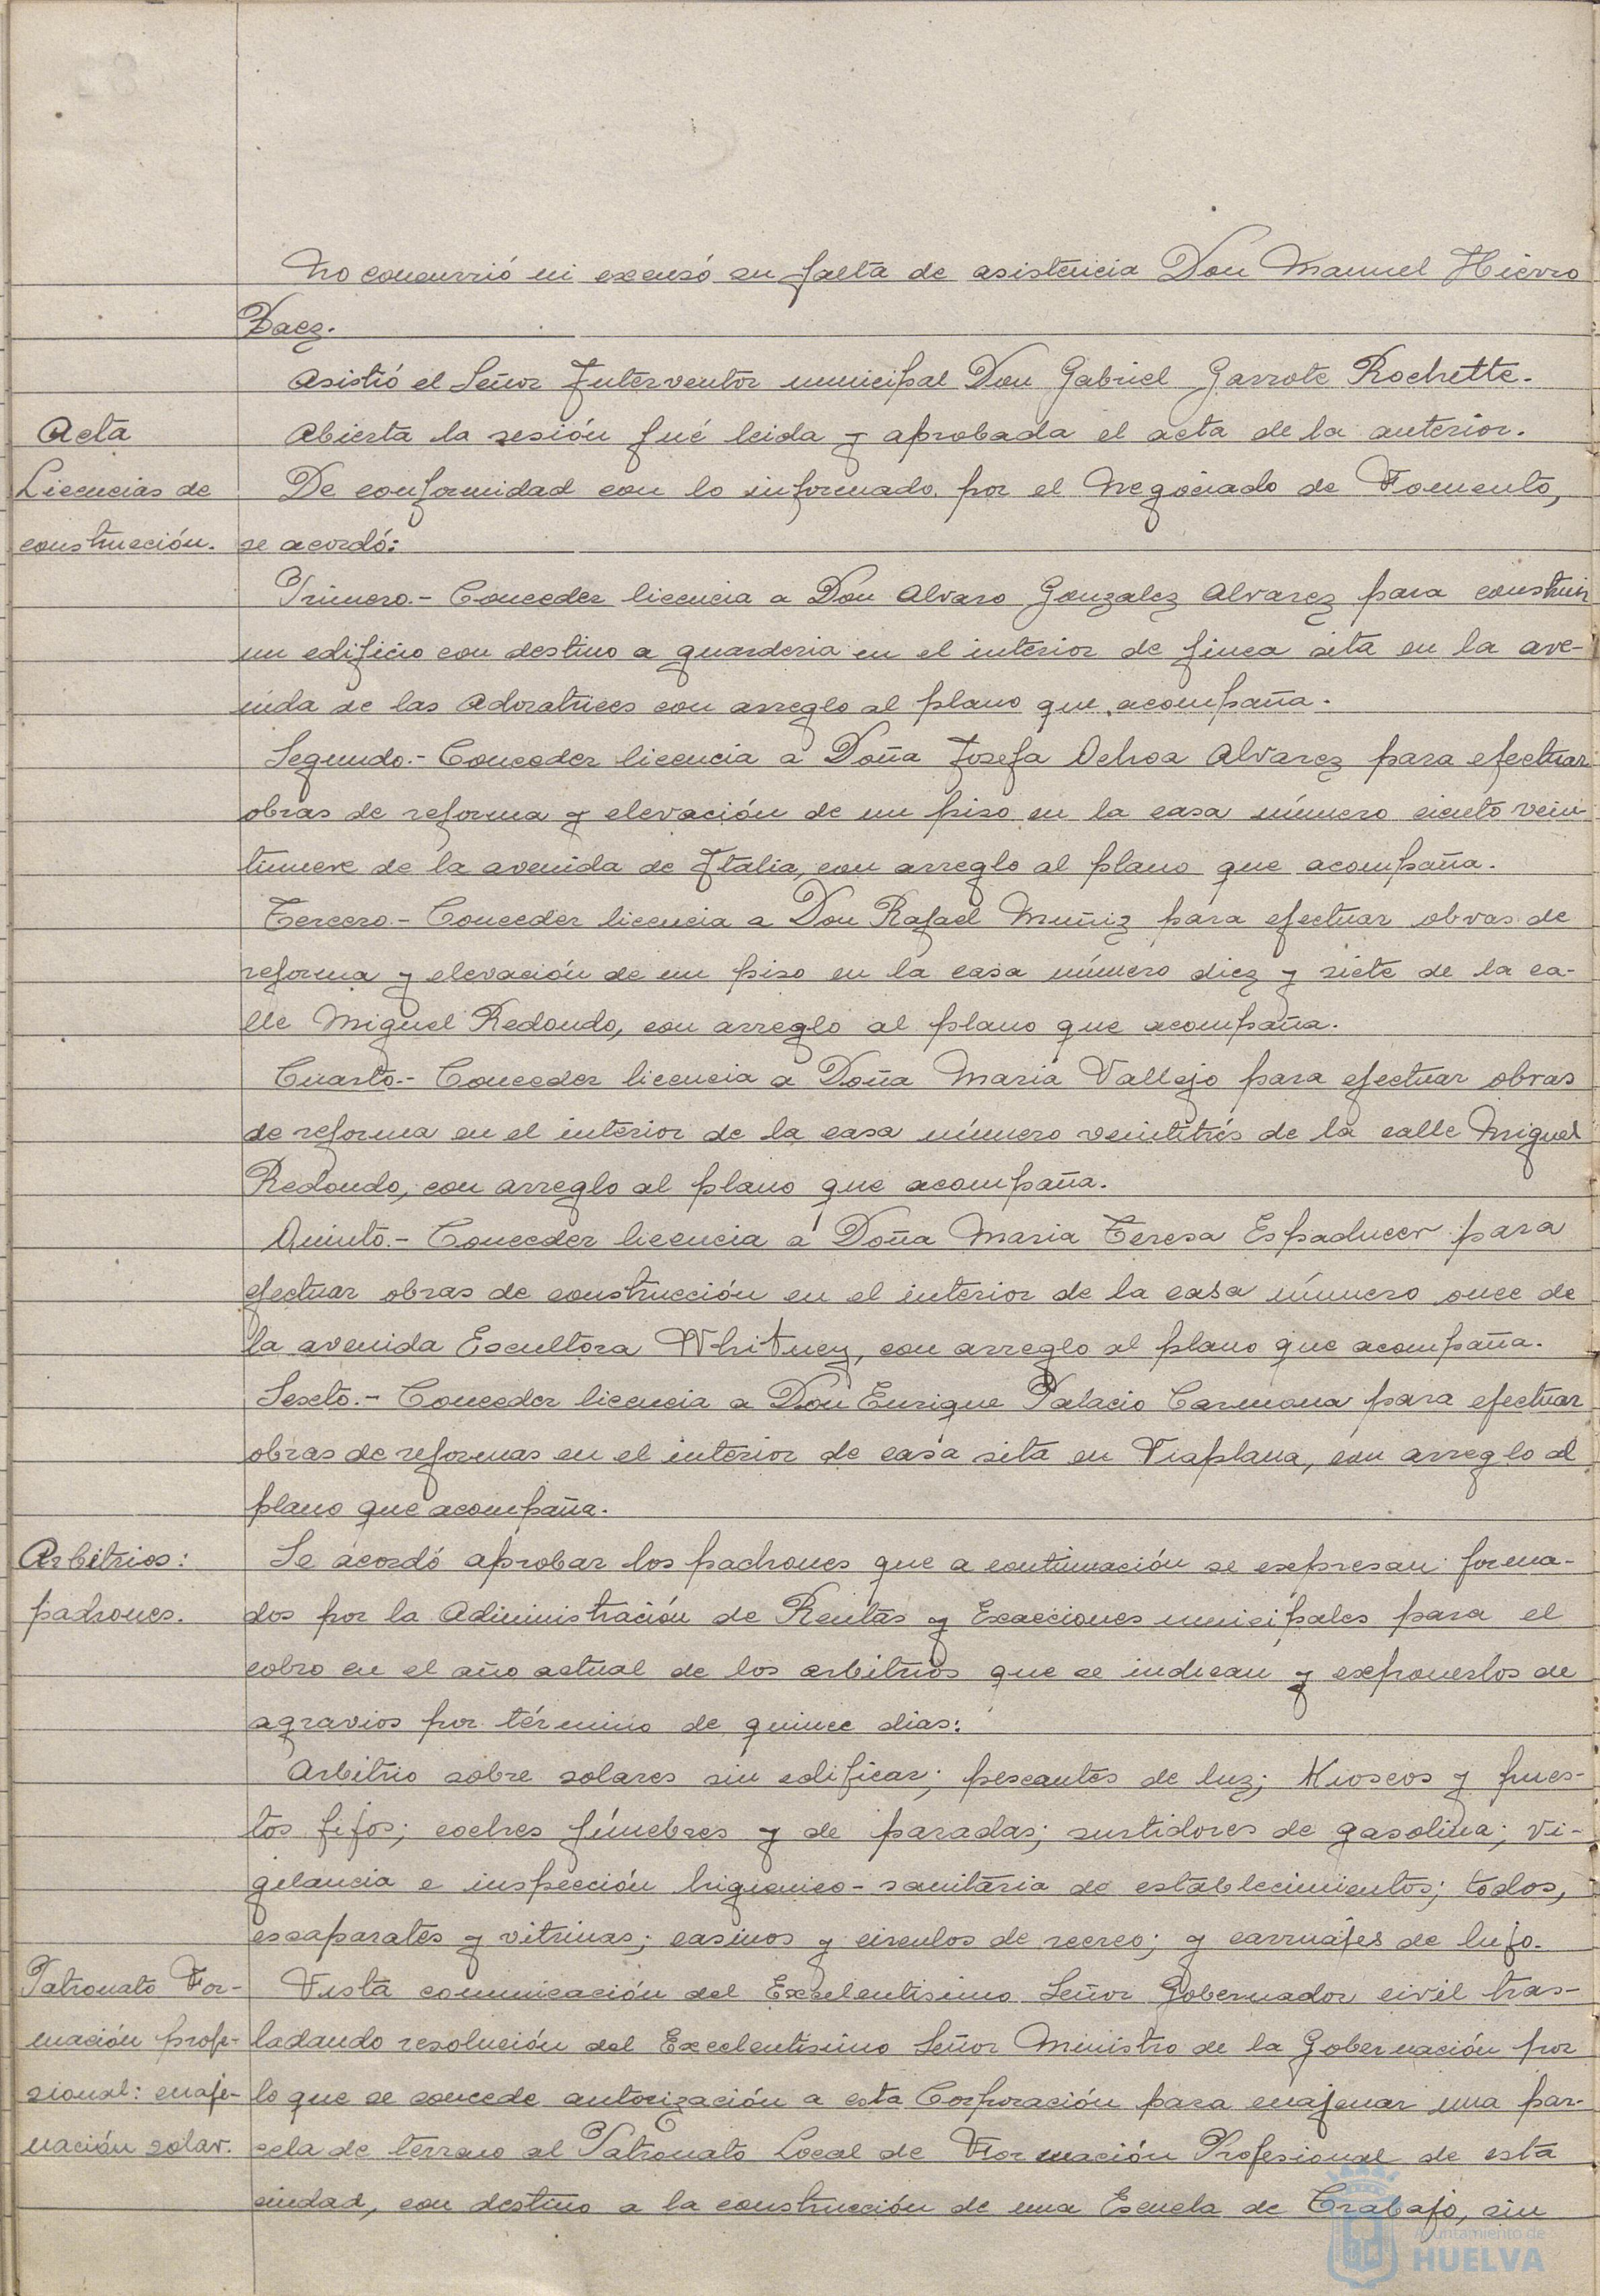 No concurrió ni excusó su falta de asistencia Don Manuel Hierro
Baez.
Asistió el Señor Interventor municipal Don Gabriel Garrote Rochette.
Acta
Abierta la sesión fué leida y aprobada el acta de la anterior.
Licencias de
De conformidad con lo informado por el Negociado de Fomento,
construcción.
se acordó:
Primero.- Conceder licencia a Don Alvaro Gonzalez Alvarez para construir
un edificio con destino a guarderia en el interior de finca sita en la ave-
nida de las Adoratrices con arreglo al plano que acompaña.
Segundo.- Conceder licencia a Doña Josefa Ochoa Alvarez para efectuar
obras de reforma y elevación de un piso en la casa número ciento vein-
tinueve de la avenida de Italia, con arreglo al plano que acompaña.
Tercero.- Conceder licencia a Don Rafael Muñiz para efectuar obras de
reforma y elevación de un piso en la casa número diez y siete de la ca-
lle Miguel Redondo, con arreglo al plano que acompaña.
Cuarto.- Conceder licencia a Doña Maria Vallejo para efectuar obras
de reforma en el interior de la casa número veintitrés de la calle Miguel
Redondo, con arreglo al plano que acompaña.
Quinto.- Conceder licencia a Doña Maria Teresa Espaducer para
efectuar obras de construcción en el interior de la casa número once de
la avenida Escultora Whitney, con arreglo al plano que acompaña.
Sexto.- Conceder licencia a Don Enrique Palacio Carmona para efectuar
obras de reformas en el interior de casa sita en Viaplana, con arreglo al
plano que acompaña.
Arbitrios:
Se acordó aprobar los padrones que a continuación se expresan forma-
padrones.
dos por la Administración de Rentas y Exacciones municipales para el
cobro en el año actual de los arbitrios que se indican y exponerlos de
agravios por término de quince dias:
Arbitrio sobre solares sin edificar; pescantes de luz; Kioscos y pues-
tos fijos; coches fúnebres y de paradas; surtidores de gasolina; vi-
gilancia e inspección higienico-sanitaria de establecimientos; todos,
escaparates y vitrinas; casinos y circulos de recreo; y carruajes de lujo.
Patronato For-
Vista comunicación del Excelentisimo Señor Gobernador civil tras-
mación profe-
ladando resolución del Excelentisimo Señor Ministro de la Gobernación por
sional: enaje-
lo que se concede autorización a esta Corporación para enajenar una par-
nación solar.
cela de terreno al Patronato Local de Formación Profesional de esta
ciudad, con destino a la construcción de una Escuela de Trabajo, sin
Ayuntamiento de
HUELVA